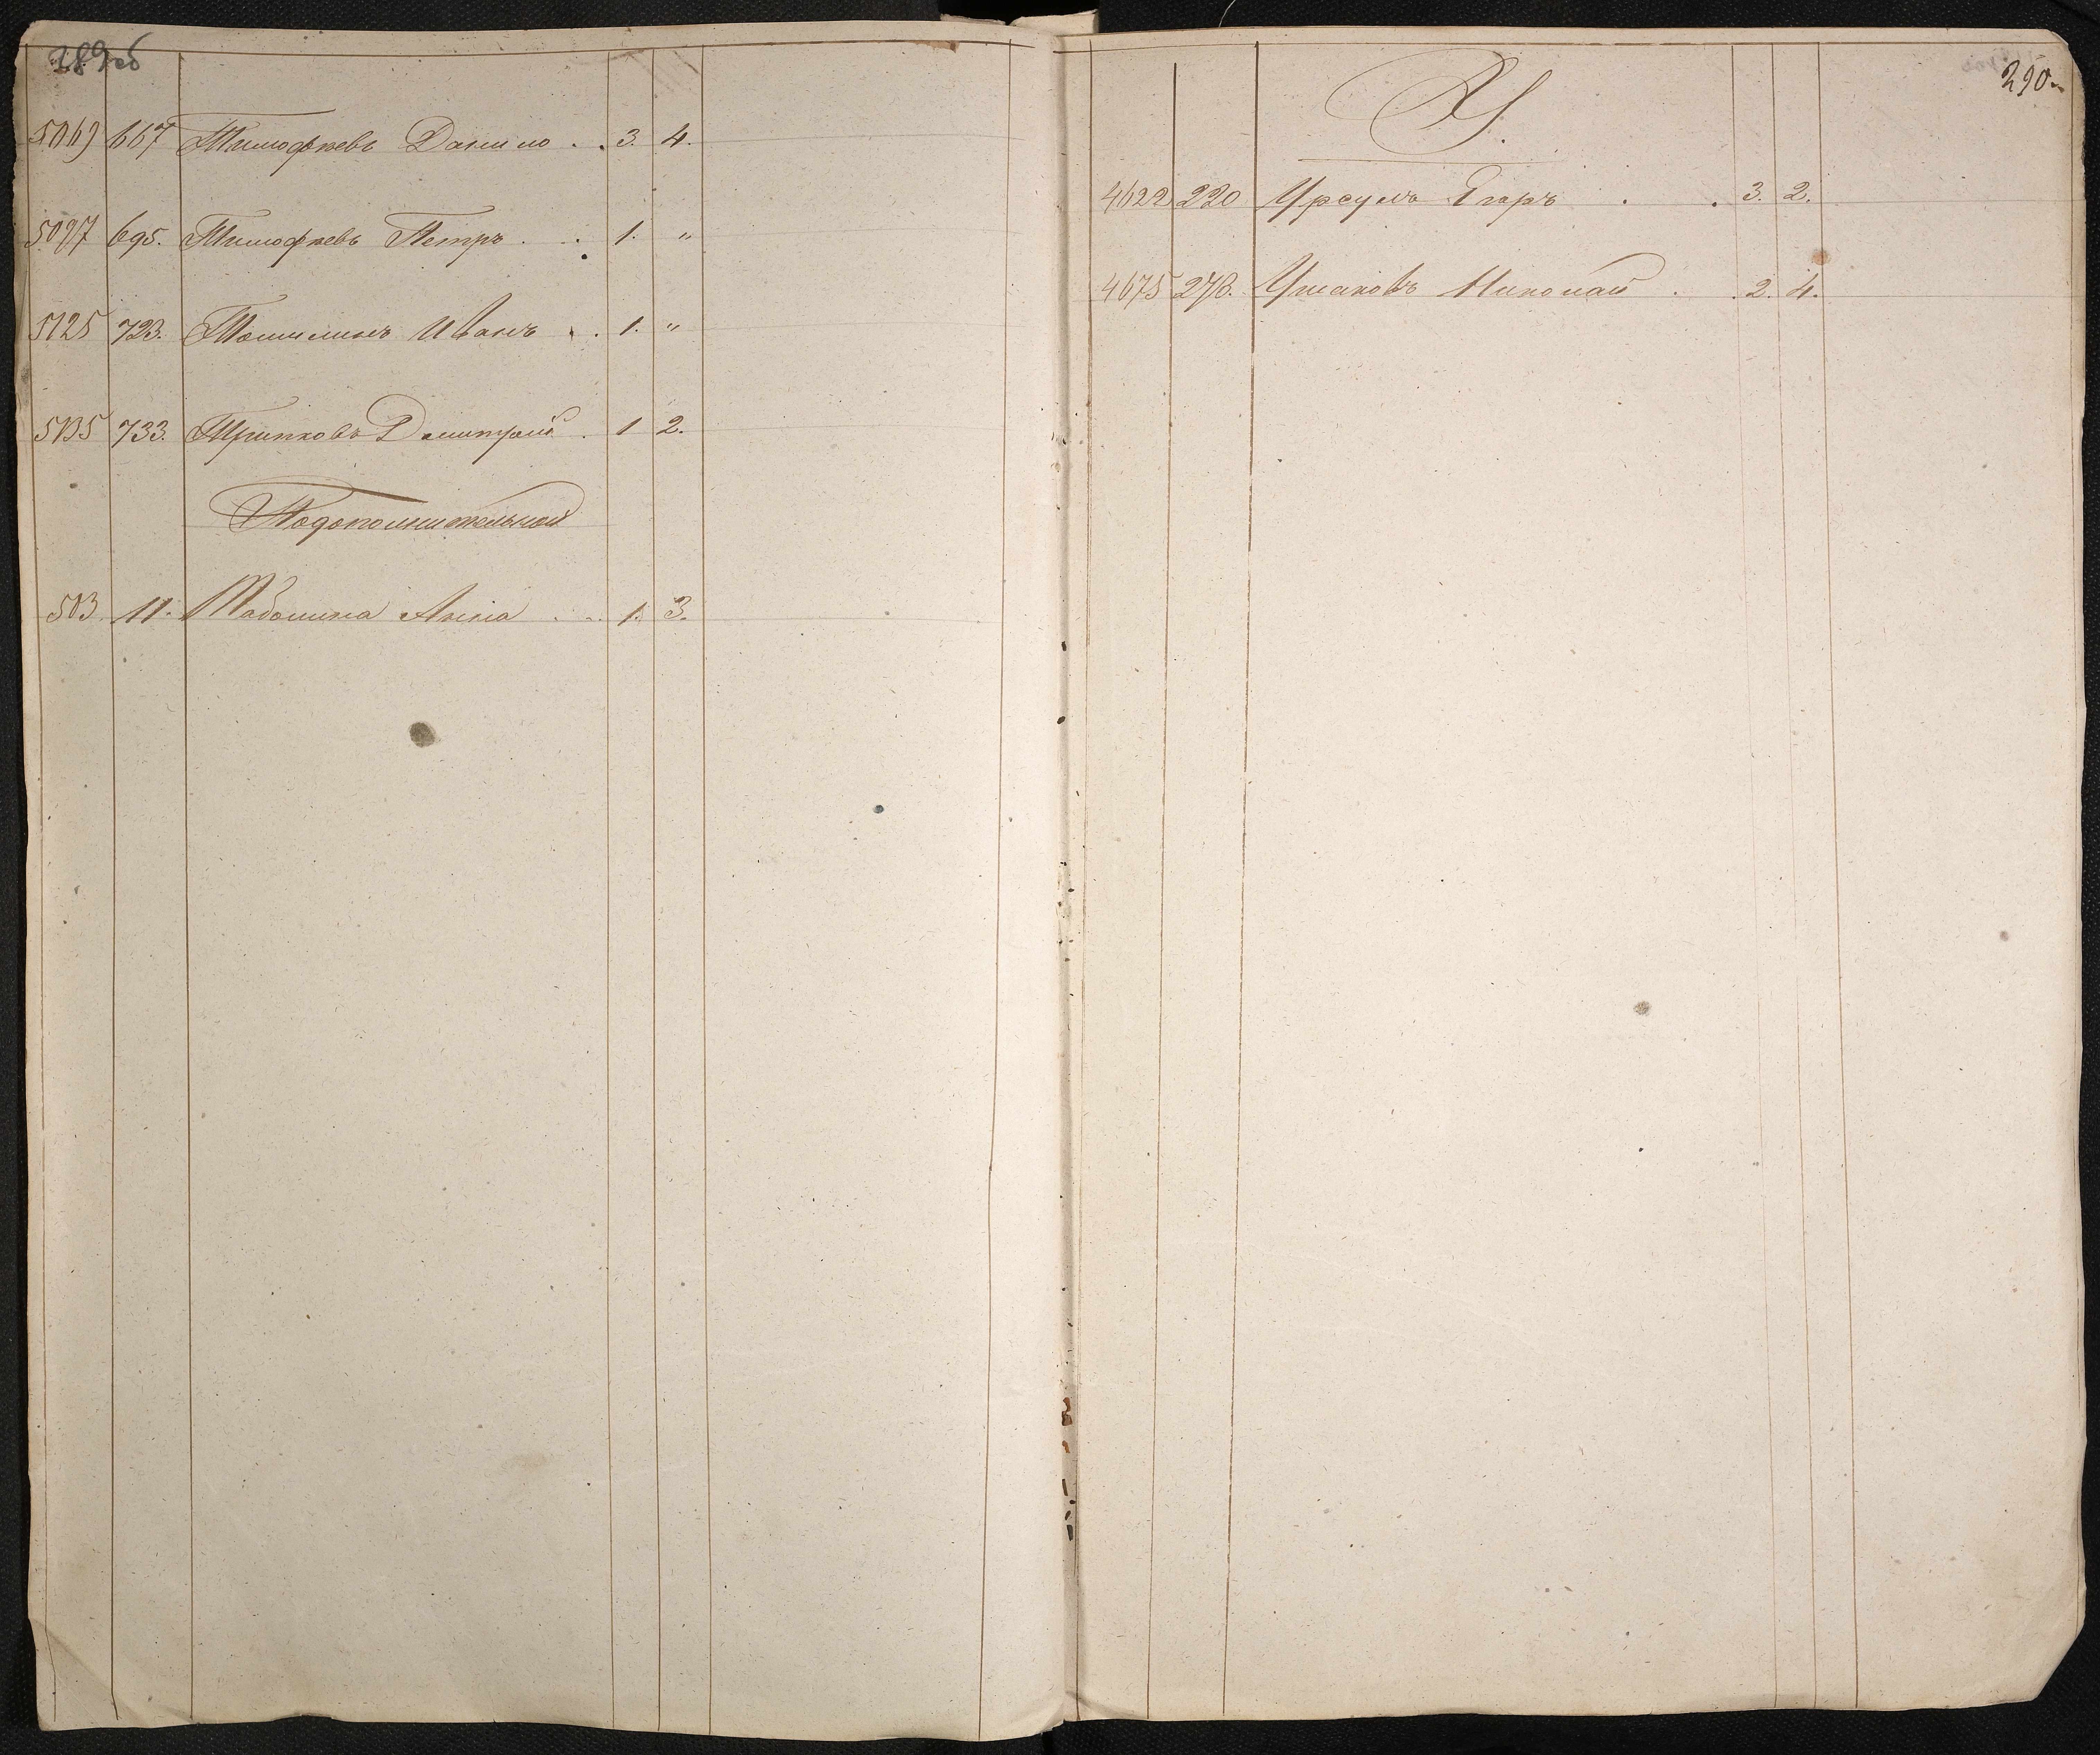 289об
5069 667 Тимофѣевъ Данило . . 3. 4.
5097 695. Тимофѣевъ Петръ . . 1. "
5125 723. Томилинъ Иванъ . . 1. "
5135 733. Трипковъ Дмитрий . 1 2.
Подополнительной
503 11. Табошина Анна . . 1. 3.
290.
У.
4622 220 Урсулъ Егоръ . . 3. 2.
4675 273. Ушаковъ Николай . . 2. 4.